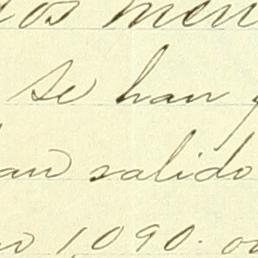 os men
se han
an salido
1090.